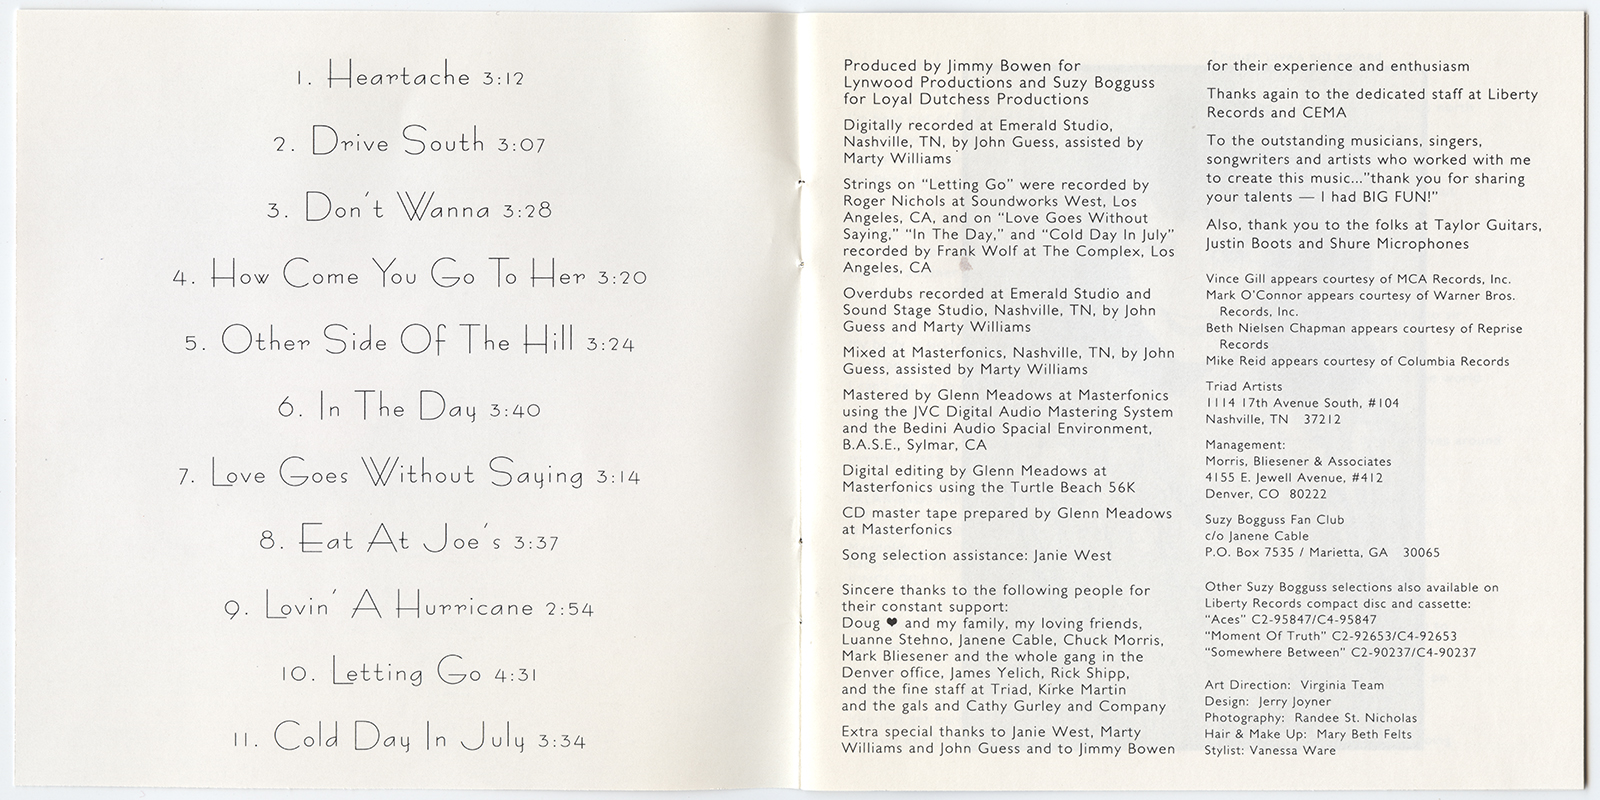 1. Heartache 3:12
2. Drive South 3:07
3. Don't Wanna 3:28
4. How Come You Go To Her 3:20
5. Other Side Of The Hill 3:24
6. In The Day 3:40
7. Love Goes Without Saying 3:14
8. Eat At Joe's 3:37
9. Lovin' A Hurricane 2:54
10. Letting Go 4:31
11. Cold Day In July 3:34
Produced by Jimmy Bowen for
Lynwood Productions and Suzy Bogguss
for Loyal Dutchess Productions
Digitally recorded at Emerald Studio,
Nashville, TN, by John Guess, assisted by
Marty Williams
Strings on “Letting Go” were recorded by
Roger Nichols at Soundworks West, Los
Angeles, CA, and on “Love Goes Without
Saying,” “In The Day,” and “Cold Day In July”
recorded by Frank Wolf at The Complex, Los
Angeles, CA
Overdubs recorded at Emerald Studio and
Sound Stage Studio, Nashville, TN, by John
Guess and Marty Williams
Mixed at Masterfonics, Nashville, TN, by John
Guess, assisted by Marty Williams
Mastered by Glenn Meadows at Masterfonics
using the JVC Digital Audio Mastering System
and the Bedini Audio Spacial Environment,
B.A.S.E., Sylmar, CA
Digital editing by Glenn Meadows at
Masterfonics using the Turtle Beach 56K
CD master tape prepared by Glenn Meadows
at Masterfonics
Song selection assistance: Janie West
Sincere thanks to the following people for
their constant support:
Doug ♥ and my family, my loving friends,
Luanne Stehno, Janene Cable, Chuck Morris,
Mark Bliesener and the whole gang in the
Denver office, James Yelich, Rick Shipp,
and the fine staff at Triad, Kirke Martin
and the gals and Cathy Gurley and Company
Extra special thanks to Janie West, Marty
Williams and John Guess and to Jimmy Bowen
for their experience and enthusiasm
Thanks again to the dedicated staff at Liberty
Records and CEMA
To the outstanding musicians, singers,
songwriters and artists who worked with me
to create this music...”thank you for sharing
your talents — I had BIG FUN!”
Also, thank you to the folks at Taylor Guitars,
Justin Boots and Shure Microphones
Vince Gill appears courtesy of MCA Records, Inc.
Mark O'Connor appears courtesy of Warner Bros.
Records, Inc.
Beth Nielsen Chapman appears courtesy of Reprise
Records
Mike Reid appears courtesy of Columbia Records
Triad Artists
1114 17th Avenue South, #104
Nashville, TN 37212
Management:
Morris, Bliesener & Associates
4155 E. Jewell Avenue, #412
Denver, CO 80222
Suzy Bogguss Fan Club
c/o Janene Cable
P.O. Box 7535 / Marietta, GA 30065
Other Suzy Bogguss selections also available on
Liberty Records compact disc and cassette:
“Aces” C2-95847/C4-95847
“Moment Of Truth” C2-92653/C4-92653
“Somewhere Between” C2-90237/C4-90237
Art Direction: Virginia Team
Design: Jerry Joyner
Photography: Randee St. Nicholas
Hair & Make Up: Mary Beth Felts
Stylist: Vanessa Ware